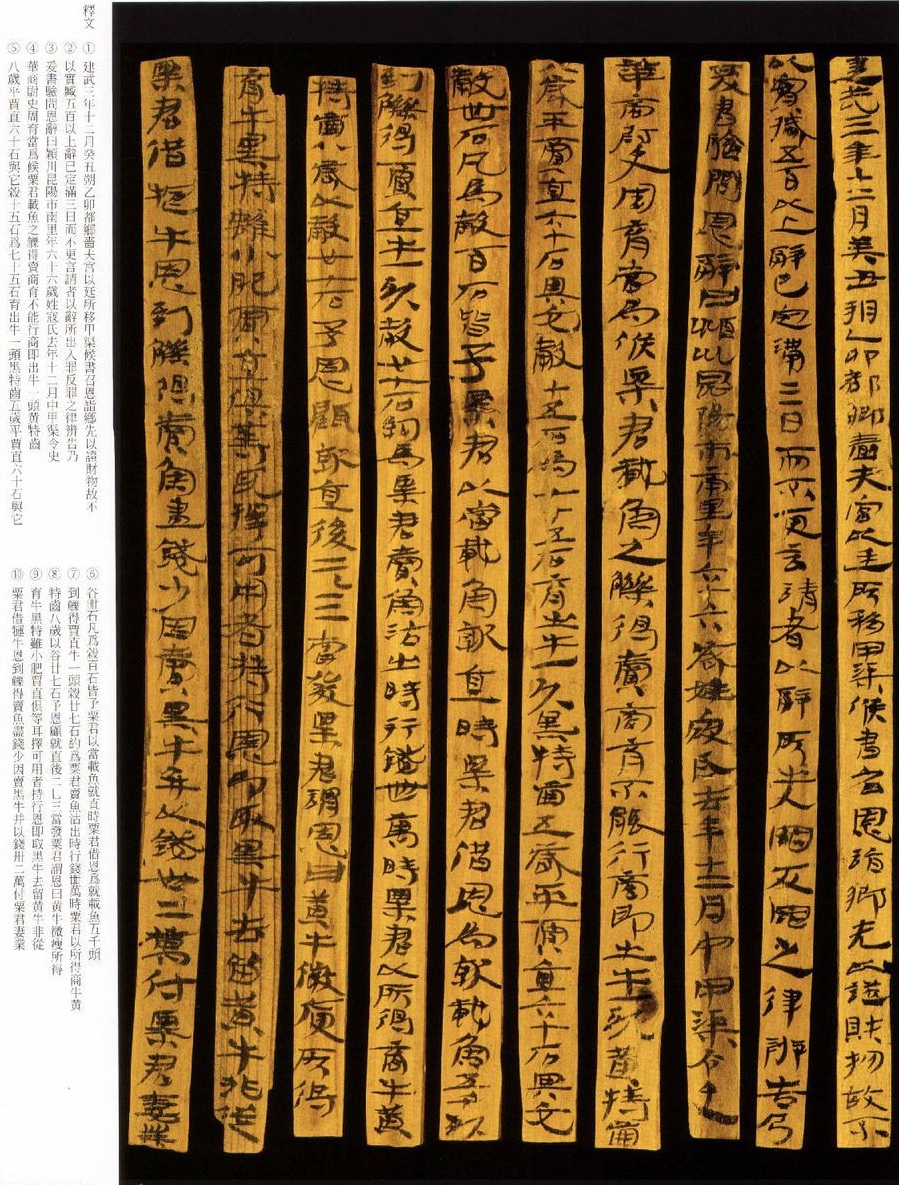 建武三年十二月癸丑朔乙卯都鄉嗇夫宮以廷所移甲渠候書召恩詣鄉先以證財物故不
以實臧五百以上辭已定滿三日而不更言請者以辭所出入罪反罪之律辨告乃
爰書驗問恩辭曰潁川昆陽市南里年六十六歲姓寇氏去年十二月中甲渠令史
華商尉史周育當為候粟君載魚之觻得賣商育不能行商即出牛一頭黃特齒
八歲平賈直六十石與它穀十五石為七十五石育出牛一頭黑特齒五歲平賈直六十石與它
穀卌石凡為穀百石皆予粟君以當載魚就直時粟君借恩為就載魚五千頭
到觻得賈直牛一頭穀廿七石約為粟君賣魚沽出時行錢卌萬時粟君以所得商牛黃
特齒八歲以穀廿七石予恩顧就直後二乚三當發粟君謂恩曰黃牛微庾所得
育牛黑特雖小肥賈直俱等耳擇可用者持行恩即取黑牛去留黃牛非從
粟君借牛恩到觻得賣魚盡錢少因賣黑牛并以錢卅二萬付粟君妻業
釋文
①建武三年十二月癸丑朔乙卯都鄉嗇夫宮以廷所移甲渠候書召恩詣鄉先以證財物故不
②以實臧五百以上辭已定滿三日而不更言請者以辭所出入罪反罪之律辨告乃
③爰書驗問恩辭曰潁川昆陽市南里年六十六歲姓寇氏去年十二月中甲渠令史
④華商尉史周育當爲候粟君載魚之觻得賣商育不能行商即出牛一頭黃特齒
⑤八歲平賈直六十石與它穀十五石爲七十五石育出牛一頭黑特齒五歲平賈直六十石與它
⑥谷卌石凡爲穀百石皆予粟君以當載魚就直時粟君借恩爲就載魚五千頭
⑦到觻得賈直牛一頭穀廿七石約爲粟君賣魚沽出時行錢卌萬時粟君以所得商牛黃
⑧特齒八歲以谷廿七石予恩顧就直後二乚三當發粟君謂恩曰黃牛微瘦所得
⑨育牛黑特雖小肥賈直俱等耳擇可用者持行恩即取黑牛去留黃牛非從
⑩粟君借牛恩到觻得賣魚盡錢少因賣黑牛并以錢卅二萬付粟君妻業